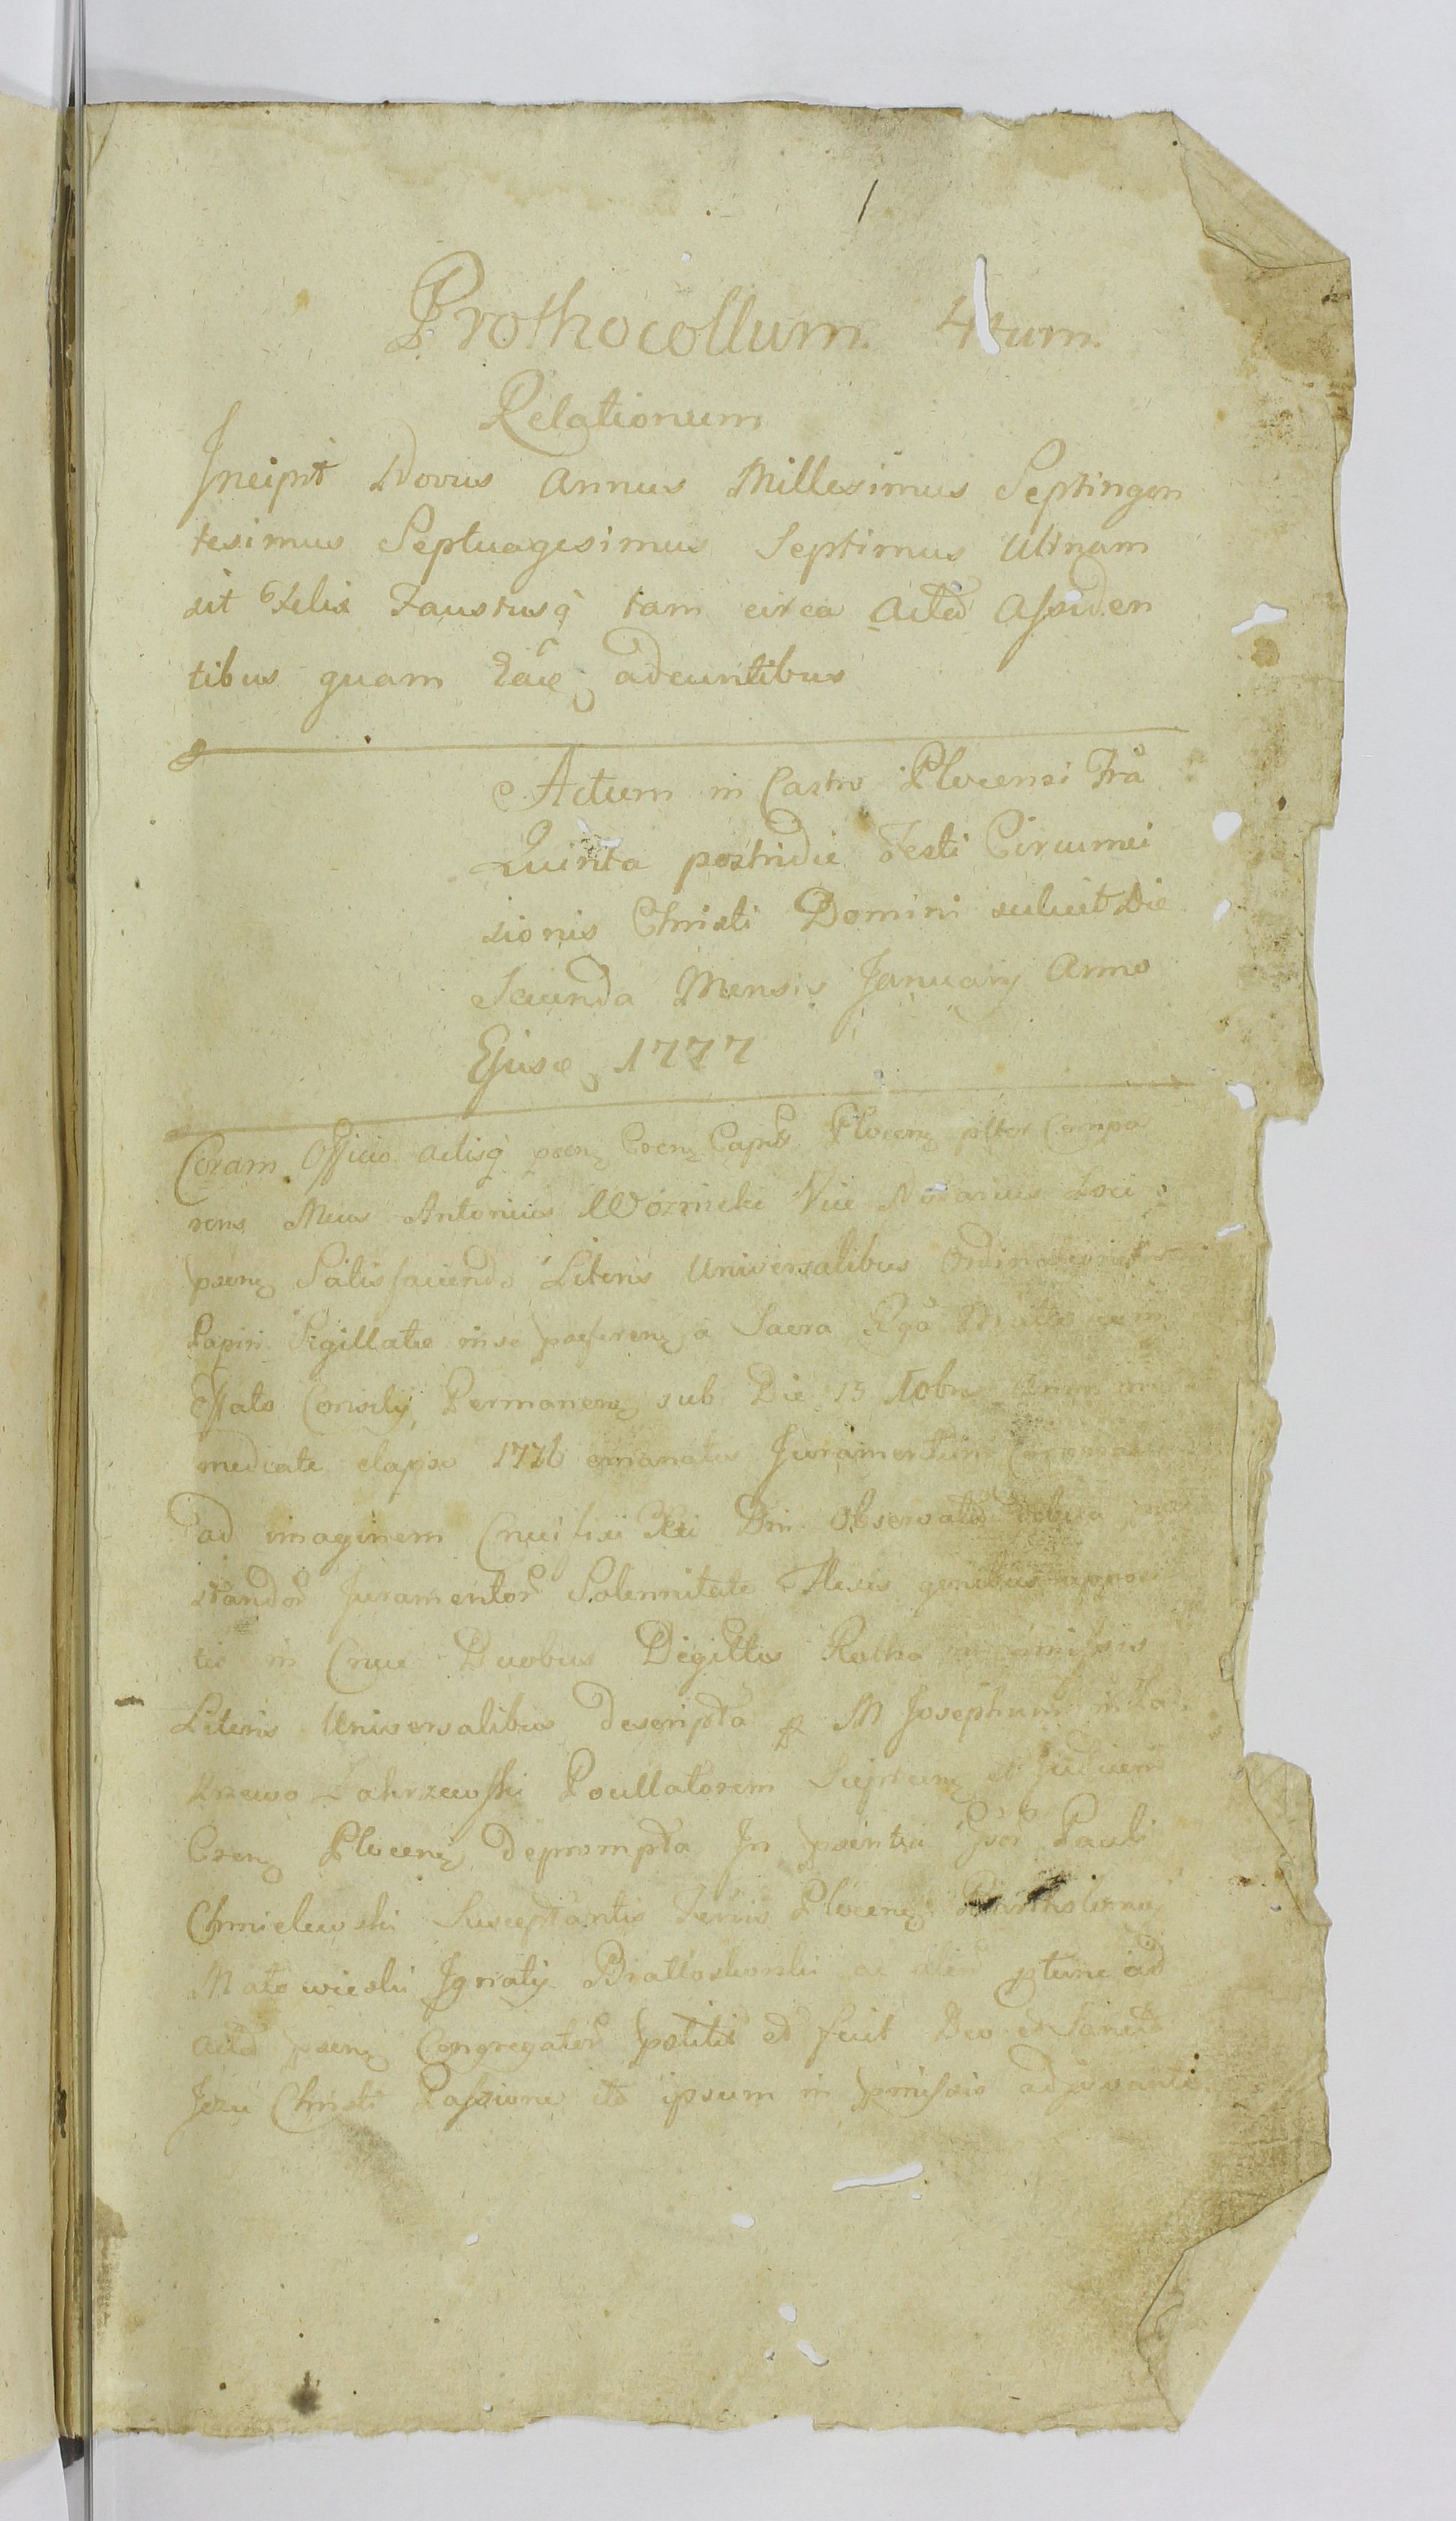 1
Prothocollum. 4tum.
Relationum
Incipit Novus Annus Millesimus Septingen
tesimus Septuagesimus Septimus Utinam
sit Felix Faustusq tam circa Acta Assiden
tibus quam adeuntibus
Actum in Castro Plocensi Fria
Quinta postridie Festi Circumci
sionis Christi Domini scilicet Die
Secunda Mensis January Anno
Ejusd 1777
Coram Officio Actisq psen Capit Plocen pltor Compa
rens Antonius Woznicki Vice Notarius Loci
psen Satisfaciendo Literis Universalibus
Papiri Sigillatae in se praeferen a Sacra Mtte cum
Consily Permanen sub Die 13 Xbris Anni im
mediate elapso 1776 emanatis Juramentum
ad imaginem Crucifixi Xti Dni Observata debita
Juramentor Solennitate Flexis genibus
tis in Cruce Duobus Digittis Rotha in pmissis
Literis Universalibus descripta p M Josephum in Za
krzewo Zakrzewski Pocillatorem et Judicem
Plocen deprompta In psentia Gsor Pauli
Chmielewski Susceptantis Terris Plocen
Małowieski Ignaty ac alior ptunc ad
acta psen Congregator pstitit et fecit Deo et
Jezu Christi Passione ita ipsum in pmissis adjuvante